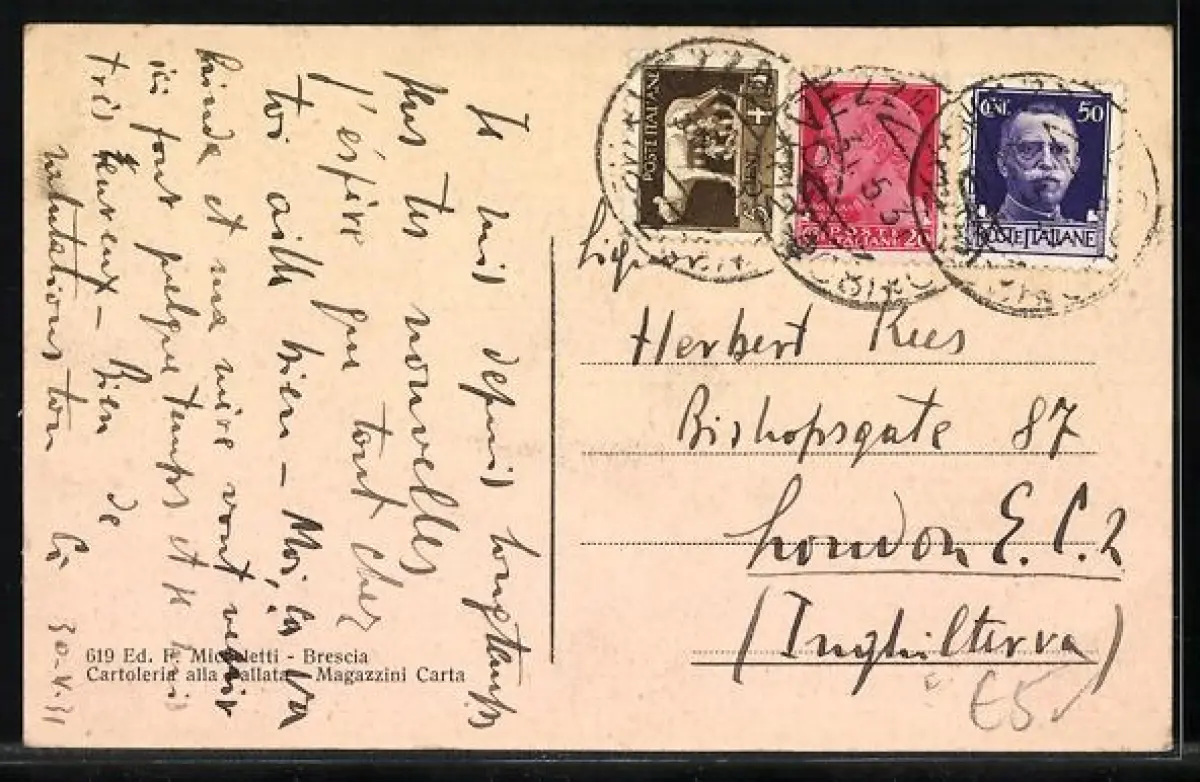 Je suis depuis longtemps
plus tes nouvelles
j'éspère que tout chez
toi aille bien – Moi, ça va
Linda et ma mère vont venir
ici pour quelque temps et je suis
très heureux – Bien de
salutations ton
30-V-31
619 Ed. F. Micheletti - Brescia
Cartoleria alla Vallata - Magazzini Carta
POSTE ITALIANE
CENT. 5
POSTE
ITALIANE 20
CENT. 50
POSTE ITALIANE
Herbert Rees
Bishopsgate 87
London E.C.2
(Inghilterra)
£5